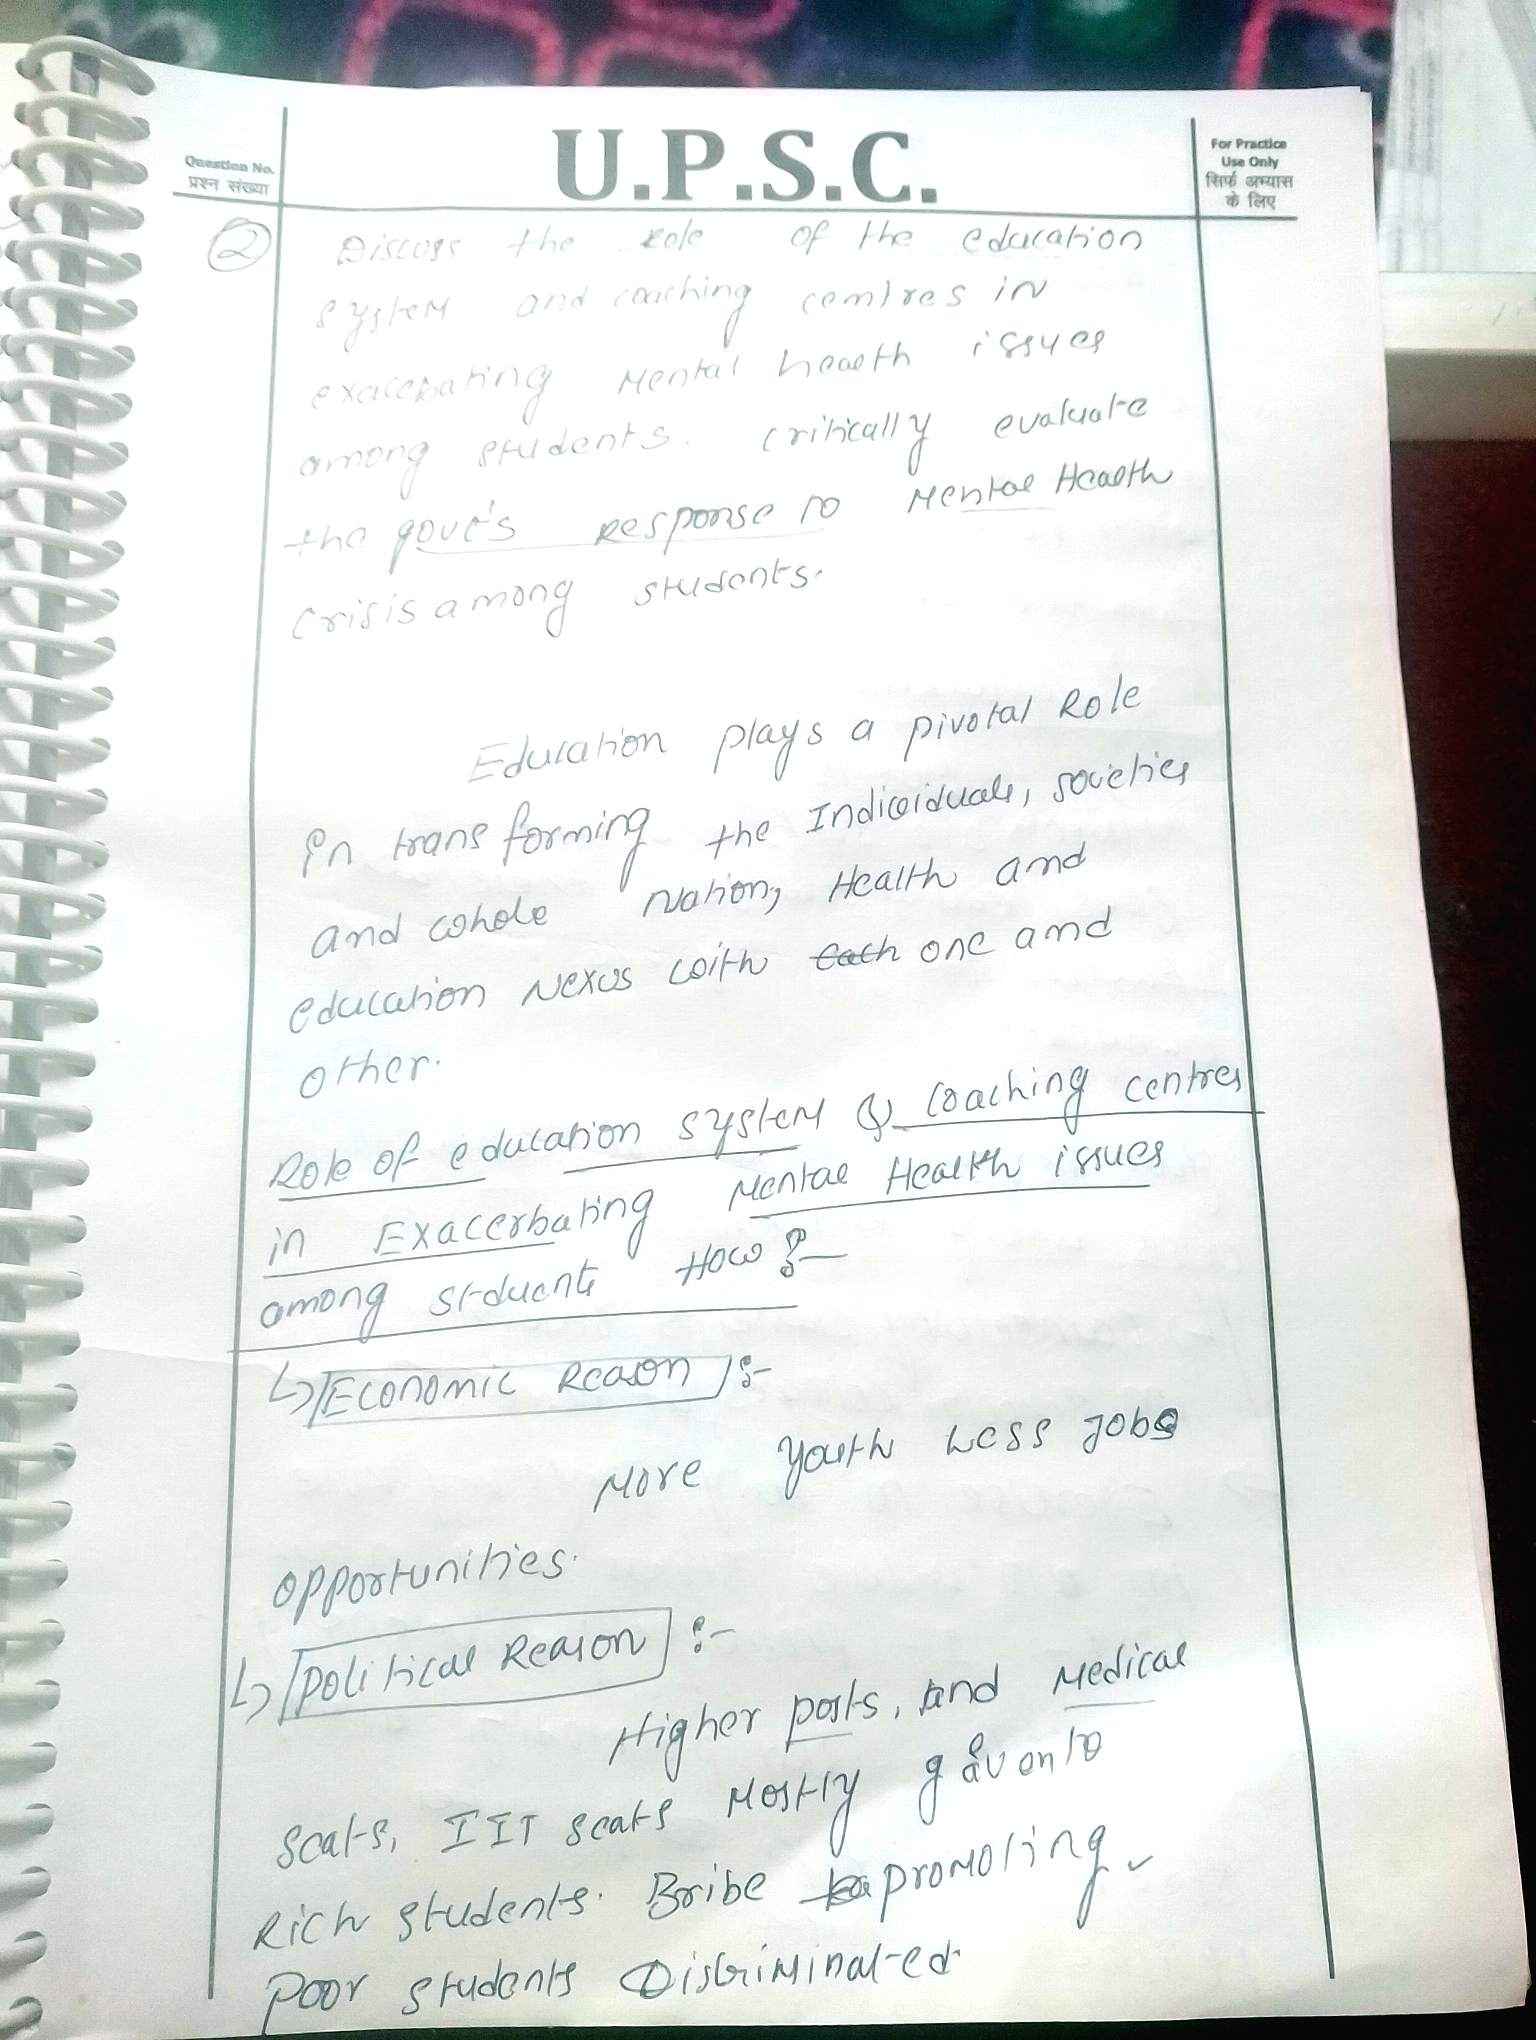 Question No.
प्रश्न संख्या
U.P.S.C.
For Practice
Use Only
सिर्फ अभ्यास
के लिए
2
Discuss the Role of the education
system and coaching centres in
exaccrbating Mental health issues
among students. critically evaluate
the govt's Response to Mental Health
crisis among students.
Education plays a pivotal Role
in transforming the Individuals, societies
and whole Nation, Health and
education Nexus with Each one and
other.
Role of education system & coaching centres
in Exacerbating Mental Health issues
among stduents How?
↳ Economic Reason :-
More Youth Less Jobs
opportunities.
↳ Political Reason :-
Higher posts, and Medical
Seats, IIT seats Mostly given to
Rich students. Bribe promoting
Poor students Discriminated